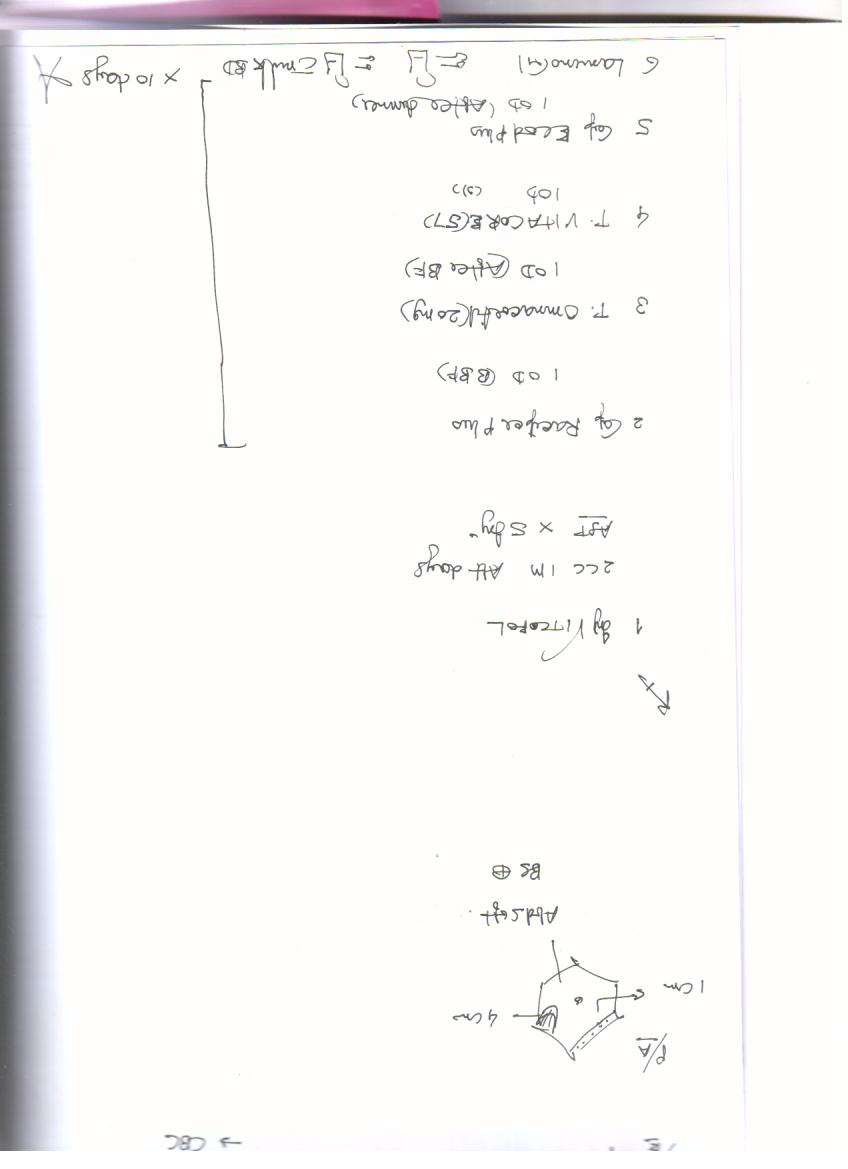 → CBC
P/A
4 cm
1 cm
Abd soft.
BS ⊕
Rx
1 Inj VITCOFOL
2cc IM Alt days
AST x 5 day
2 Cap Raciper Plus
1 OD (BBF)
3 T. Omnacortil (20mg)
1 OD (After BF)
4 T. VITACORE (57)
1 OD
5 Cap Ecod Plus
1 OD (After dinner)
6 milk BD
x 10 days